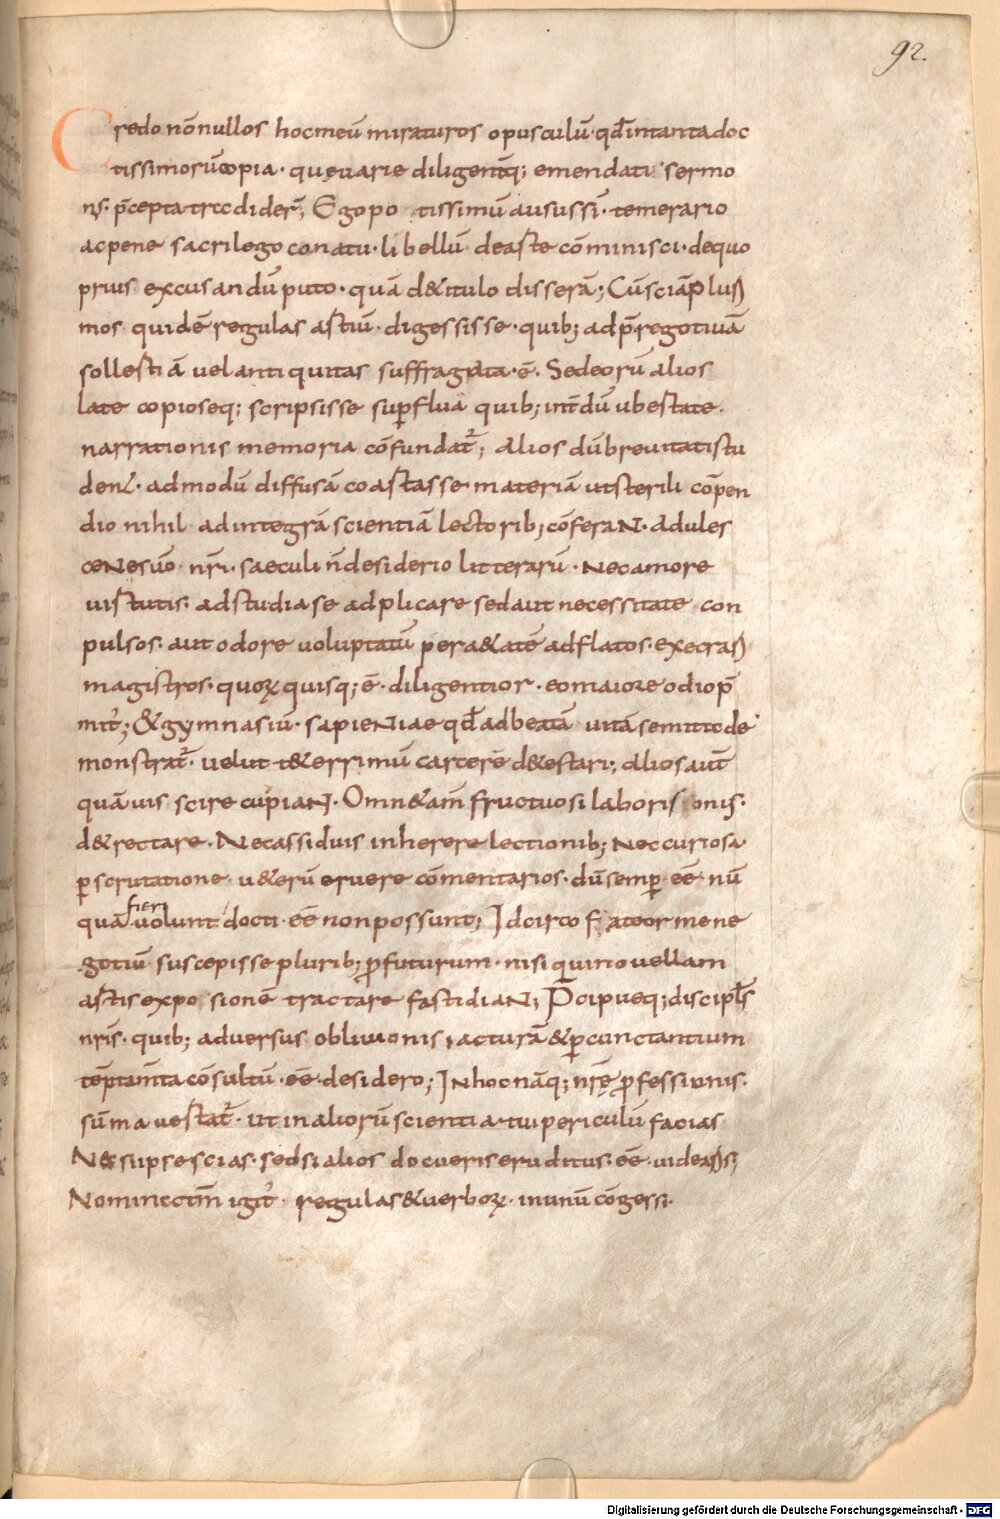 92.
Credo nōnullos hoc meū miraturos opusculū· qđ in tanta doc
tissimorū copia· quę varie diligentq; emendati sermo
nis· p̄cepta tradider̄; Ego potissimū ausus sī· temerario
ac pene sacrilego conatu· libellū de arte cōminisci· de quo
prius excusandū puto· quā de titulo disserā; Cū sciā plurị
mos quidē regulas artiū· digessisse· quib; ad p̄rogativā
sollertiā vel antiquitas suffragata· ē· Sed eorū alios
late copioseq; scripsisse supflua quib; int̄dū ubertate·
narrationis memoria cōfundat̄; Alios dū brevitati stu
dent· admodū diffusā coartasse materiā ut sterili cōpen
dio nihil ad integrā scientiā lectorib; cōferant· Adules
centes uō nr̄i· saeculi ñ desiderio litterarū· Nec amore
virtutis· ad studia se adplicare sed aut necessitate con
pulsos· aut odore voluptatū per aetatē adflatos· execrari
magistros· quorꝝ quisq; ē· diligentior· eo maiore odio p̄
mit̄; & gymnasiū· sapientiae qđ ad beatā vitā semita de
monstrat̄· velut teterrimū carcerē detestari; Alios aut̄
quāvis scire cupiant· Omnē tam̄ fructuosi laboris onus·
detrectare· Nec assiduis inherere lectionib; Nec curiosa
pscrutatione veterū eruere cōmentarios· dū semp· eē· nū
fieri
quā· volunt docti· eē non possunt; Idcirco fateor me ne
gotiū suscepisse plurib; ꝓfuturum· nisi qui novellam
artis exposionē tractare fastidiant; P̄cipueq; discipl̄s
nr̄is· quib; adversus oblivionis iacturā & pcunctantium
tēptam̄ta cōsultū· eē· desidero; In hoc nāq; nr̄ę ꝓfessionis·
sūma vertat̄· ut in aliorū scientia tui periculū facias
Ne tu ipse scias· sed si alios docueris eruditus· eē· videaris;
Nominū etm̄ igit̄· regulas & verborꝝ· in unū cōgessi·
Digitalisierung gefördert durch die Deutsche Forschungsgemeinschaft - DFG